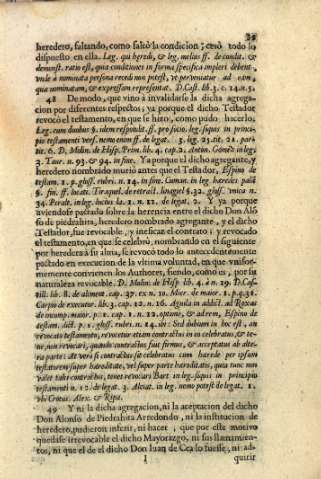 heredero, faltando, como faltò la condicion, cesò todo lo
dispuesto en ella. Leg. qui heredi, & leg. melius ff. de condit. &
demonst. ratio est, quia conditiones in forma specifica impleri debent,
unde à nominata persona recedi non potest, ve perveniatur ad eam,
qua nominatam, & expressam representat. D. Cast. lib. 3. c. 14. n. 5.
48 De modo, que vino à invalidarse la dicha agrega-
cion por diferentes respectos, ya porque el dicho Testador
revocò el testamento, en que se hizo, como pudo hacerlo,
Leg. cum duobus §. idem respondit. ff. pro socio. leg. siquis in princi-
pis testamenti vers. nemo enim ff. de legat. 3. leg. 23. tit. 21. parti-
te. 6. D. Molin. de Hisp. Prim. lib. 4. cap. 2. elatim. Gomèz in leg.
3. Taur. n. 93. & 94. in fine. Ya porque el dicho agregante, y
heredero nombrado murio antes que el Testador, Espino de
testam. 1. p. gloss. rubri. n. 14. in fine. Cuman. in leg. haredes palà
§. fin. ff. locati. Tiraquel. de retrait. linagel §. 32. gloss. unica n.
34. Peralt. in leg. Lucius la. 2. n. 12. de legat. 2. Y ya porque
aviendose pactado sobre la herencia entre el dicho Don Alon-
so de piedrahita, heredero nombrado agregante, y el dicho
Testador, fue revocable, y inesican el contrato; y revocado
el testamento, en que se celebrò, nombrando en el siguiente
por heredera à su alma, se revocò todo lo antecedentemente
pactado en execucion de la vltima voluntad, en que vnifor-
memente convienen los Authores, siendo, como es, por su
naturaleza revocable. D. Molin. de Hisp. lib. 4. à n. 29. D. Cas-
till. lib. 8. de aliment. cap. 37. ex n. 10. Mier. de maior. 1. p. 4. 31.
Carpio de executor. lib. 3. cap. 12. n. 16. Aguila in addict. ad Roxas
de incomp. maior. p. 1. cap. 1. n. 22. optime, & ad rem, Espino de
testam. dict. p. 1. gloss. rubri. n. 24. ibi: Sed dubium in hoc est, an
revocato testamento, revocetur etiam contractus in eo celebratus, & te-
ne, non revocari, quando contractus fuit firmus, & acceptatus ab alte-
ra parte: At vero si contractus sit celebratus cum harede per ipsum
testatorem super hareditate, vel super parte hareditatis, quia tunc non
valet talis contractus, tenet revocari Bart. in leg. siquis in principio
testamenti n. 12. de legat. 3. Alciat. in leg. nemo potest de legat. 1.
vbi Croius. Alex. & Ripa.
49 Y ni la dicha agregacion, ni la aceptacion del dicho
Don Alonso de Piedrahita Arredondo, ni la institucion de
heredero, pudieron inferir, ni hacer, que por este motivo
quedase irrevocable el dicho Mayorazgo, ni sus llamamien-
tos, ni que el de el dicho Don Juan de Cea lo fuesse, ni ad-
I quirir